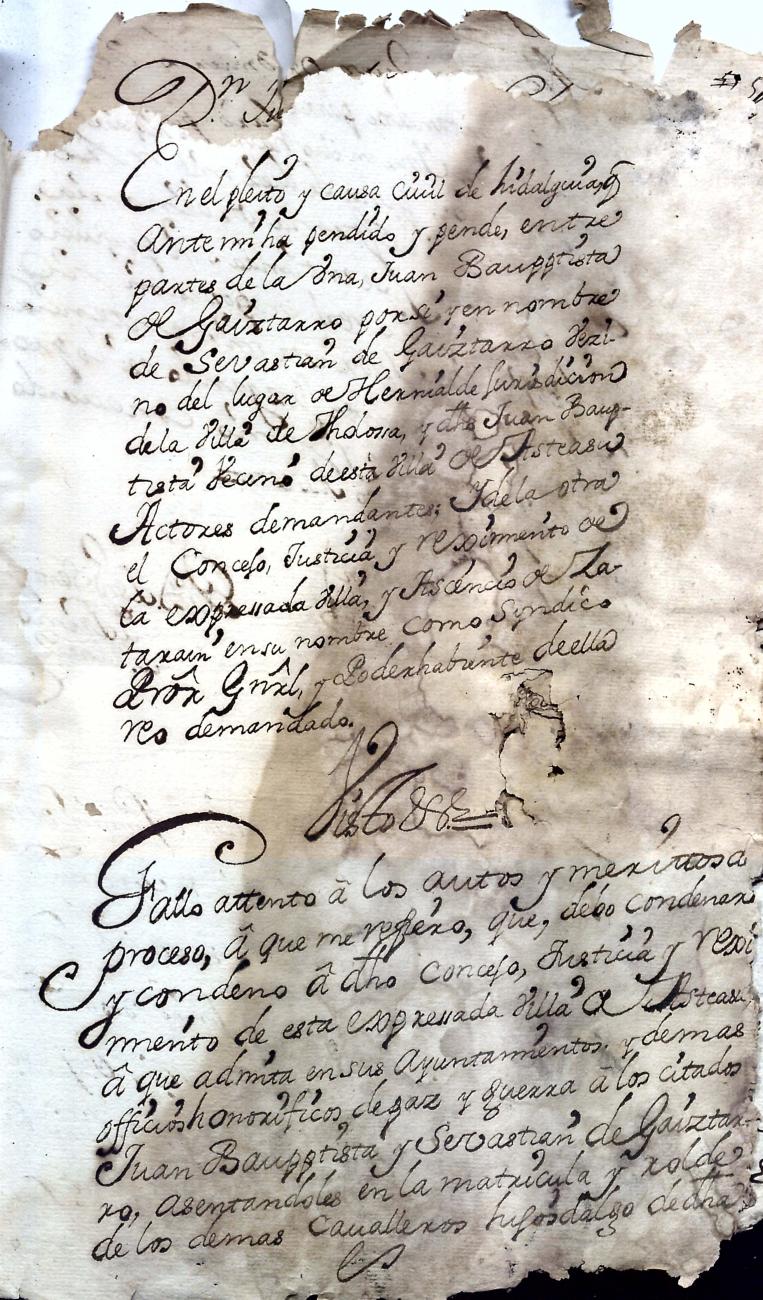 Dn Ju
En el pleito y causa ciuil de hidalguia, q
ante mi ha pendido y pende, entre
partes de la Vna, Juan Bauptista
de Gaiztarro por si y en nombre
de Sevastian de Gaiztarro Vezi-
no del lugar de Hernialde Jurisdicion
de la Villa de Tholossa, y dho Juan Baup-
tista Vecino de esta Villa de Asteasu
Actores demandantes; Y de la otra
el Concejo, Justicia y reximiento de
la expressada Villa, y Ascencio de Za-
tarain en su nombre como Syndico
Pror Gnrl, y Poderhabiente de ella
reo demandado.
Visto &&
Fallo attento â los autos y merittos d
proceso, â que me reffiero, que, debo condenar
y condeno â dho Concejo, Justicia y rexi
miento de esta expressada Villa de Asteasu
â que admita en sus Ayuntamientos, y demas
officios honorificos de paz y guerra â los citados
Juan Bauptista y Sevastian de Gaiztar-
ro, asentandoles en la matricula y rolde
de los demas Cavalleros hijosdalgo de dha